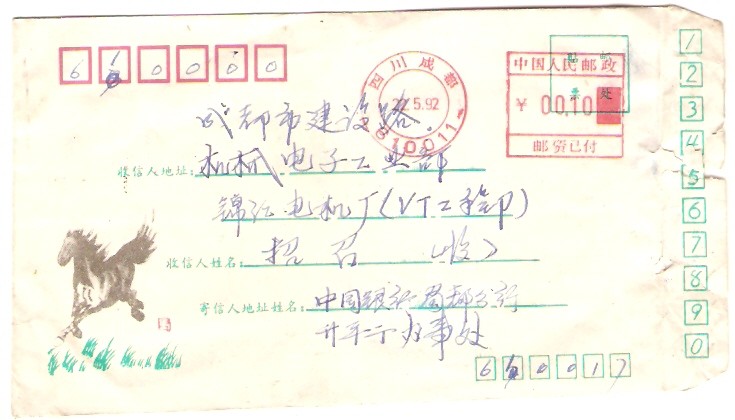 610000
四川成都
22.5.92
610011
中国人民邮政
¥ 00.10
邮资已付
贴邮
票处
成都市建设路.
收信人地址: 机械电子工业部
锦江电机厂(VT工程部)
收信人姓名: 招召 (收)
寄信人地址姓名: 中国银行蜀都分行
办事处
610017
1
2
3
4
5
6
7
8
9
0